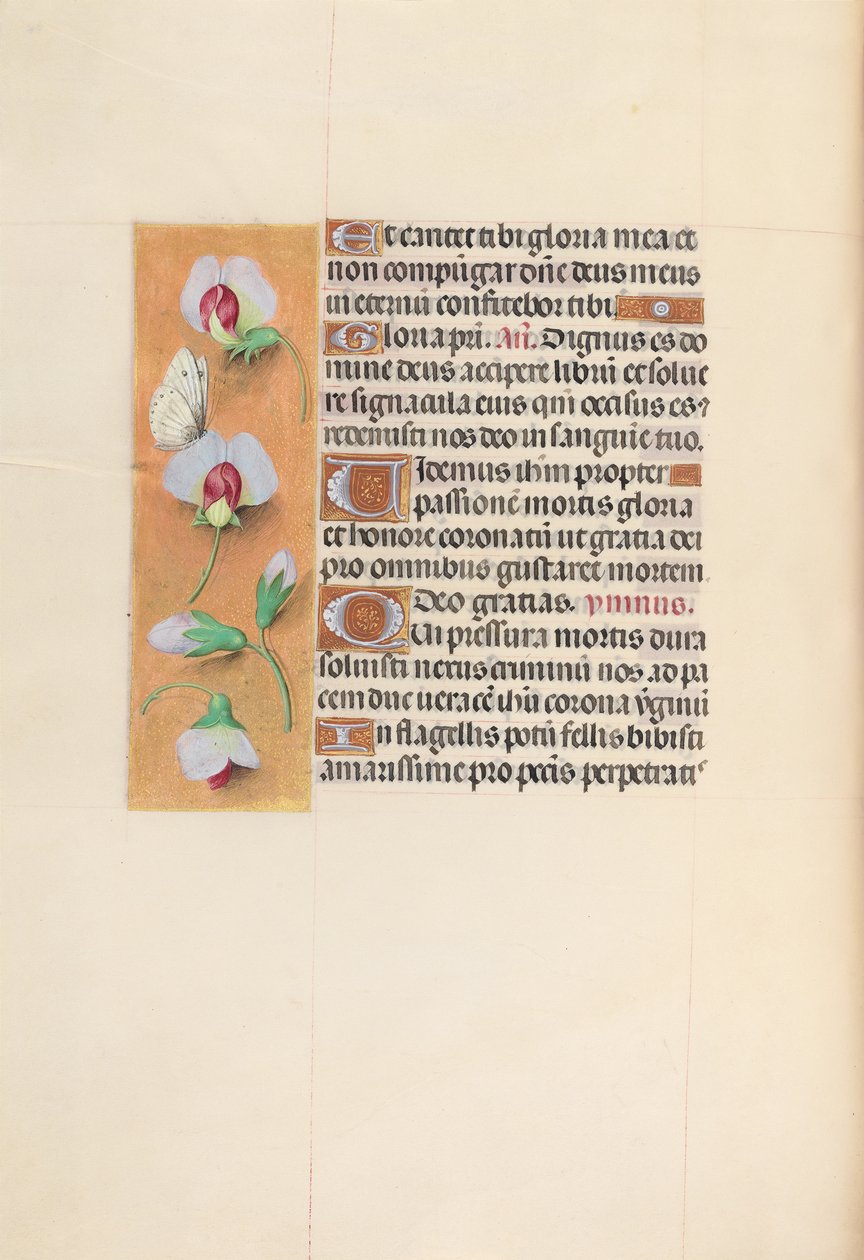 Et cantet tibi gloria mea et
non compūgar dn̄e deus meus
in eternū confitebor tibi.
Gloria pr̄i. An̄. Dignus es do
mine deus accipere librū et solue
re signacula eius qm̄ occisus es ⁊
redemisti nos deo in sanguīe tuo.
Uidemus ihm̄ propter
passionē mortis gloria
et honore coronatū ut gratia dei
pro omnibus gustaret mortem.
Deo gratias. ymnus.
Qui pressura mortis dura
soluisti nexus criminū nos ad pa
cem duc ueracē ihū corona v̄ginū
In flagellis potū fellis bibisti
amarissime pro pccīs perpetratis